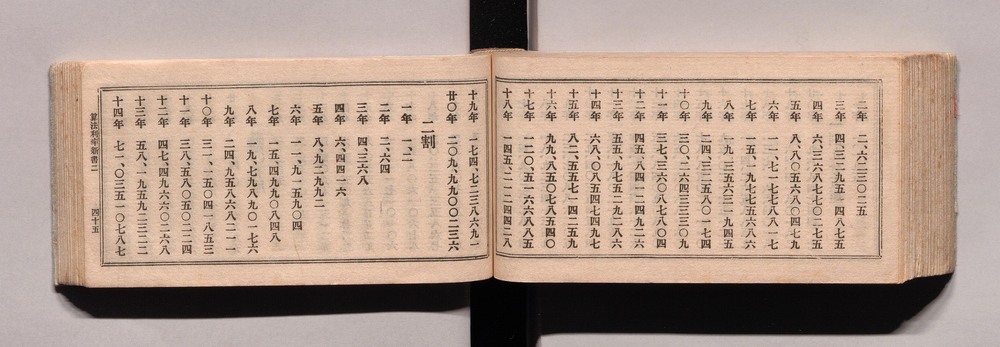 二年 二、六二三〇二五
三年 四、三二九五一四八七五
四年 六、三六八七七〇二七五
五年 八、八〇五六八〇四七九
六年 一一、七一七七八八一七
七年 一五、一九七七五六八六
八年 一九、三五六三一九四五
九年 二四、三二五八〇一七四
十〇年 三〇、二六四三三三〇九
十一年 三七、三六〇八七八〇四
十二年 四五、八四一二四九二六
十三年 五五、九七五二九二八六
十四年 六八、〇八五四七四九七
十五年 八二、五五七一四二五九
十六年 九九、八五〇七八五四〇
十七年 一二〇、五一六六八八五五
十八年 一四五、二一二四四二八
十九年 一七四、七二三八六九一
廿〇年 二〇九、九九〇〇二三六
二割
一年 一、二
二年 二、六四
三年 四、三六八
四年 六、四四一六
五年 八、九二九九二
六年 一一、九一五九〇四
七年 一五、四九九〇八四八
八年 一九、七九八九〇一七六
九年 二四、九五八六八二一一
十〇年 三一、一五〇四一八五三
十一年 三八、五八〇五〇二二四
十二年 四七、四九六六〇二六八
十三年 五八、一九五九二三二二
十四年 七一、〇三五一〇七八七
算法利率新書二 四十五